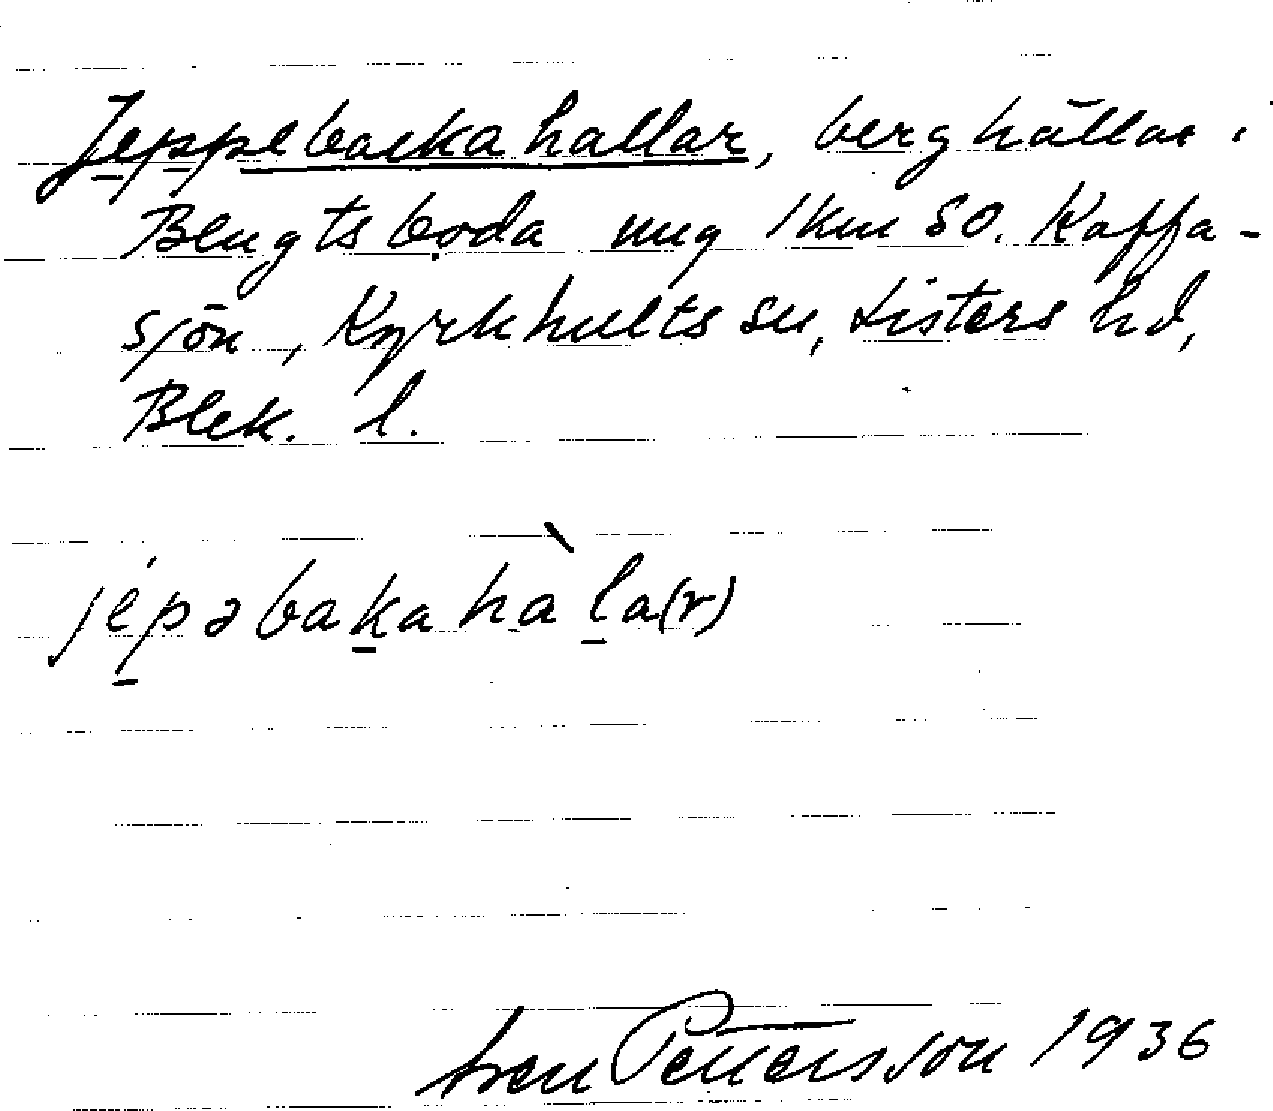 Jeppebackahallar, berghällar i
Bengtsboda ung 1 km SO. Kaffa-
sjön, Kyrkhults sn, Listers hd,
Blek. l.
jépəbakahàla(r)
Sven Pettersson 1936